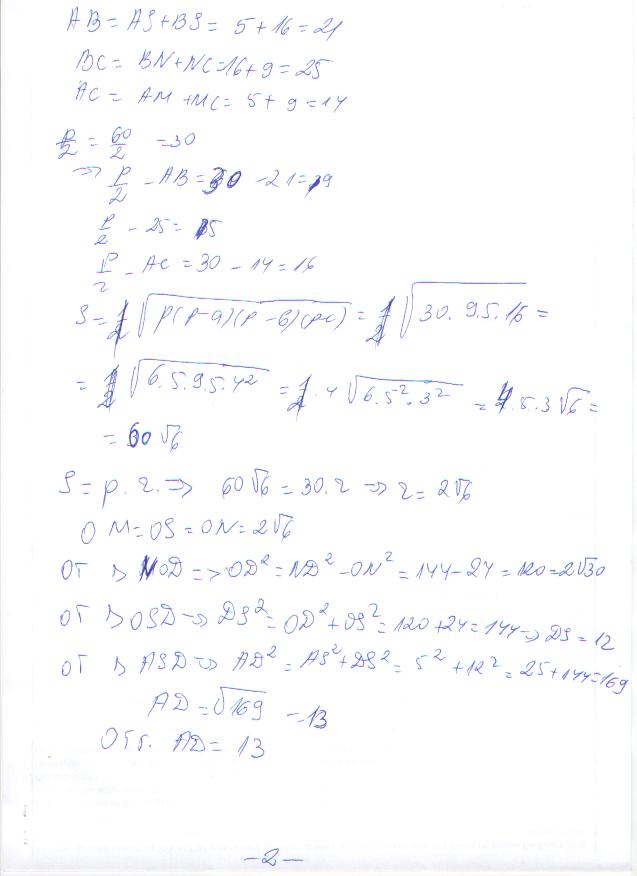 AB = AS + BS = 5 + 16 = 21
BC = BN + NC = 16 + 9 = 25
AC = AM + MC = 5 + 9 = 14
P/2 = 60/2 = 30
=> P/2 - AB = 30 - 21 = 9
P/2 - 25 = 5
P/2 - AC = 30 - 14 = 16
S = √p(p-a)(p-b)(p-c) = √30.9.5.16 =
= √6.5.9.5.4² = 4√6.5².3² = 4.5.3√6 =
= 60√6
S = p.r. => 60√6 = 30.r => r = 2√6
OM = OS = ON = 2√6
от △ NOD => OD² = ND² - ON² = 144 - 24 = 120 = 2√30
от △ OSD => DS² = OD² + OS² = 120 + 24 = 144 => DS = 12
от △ ASD => AD² = AS² + DS² = 5² + 12² = 25 + 144 = 169
AD = √169 = 13
Отг. AD = 13
- 2 -